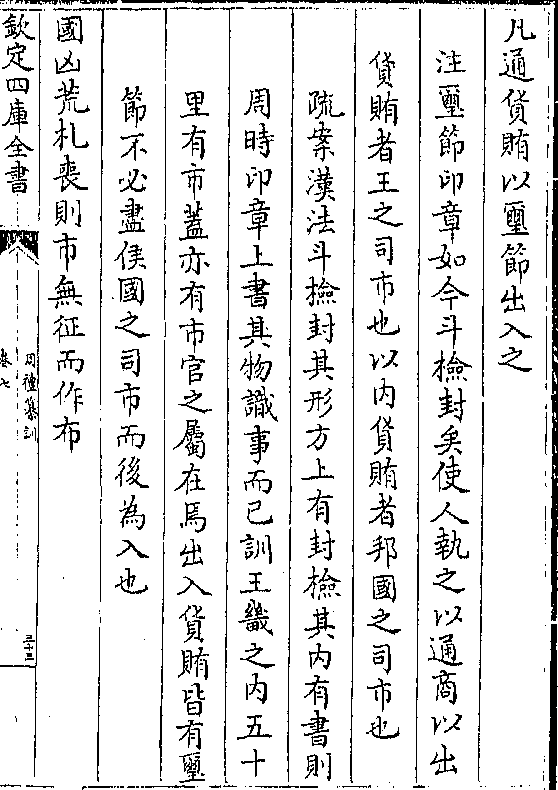 凡通貨賄以璽節出入之
注璽節印章如今斗檢封矣使人執之以通商以出
貨賄者王之司市也以内貨賄者邦國之司市也
疏案漢法斗檢封其形方上有封檢其内有書則
周時印章上書其物識事而已訓王畿之内五十
里有市蓋亦有市官之屬在焉出入貨賄皆有璽
節不必盡侯國之司市而後為入也
國凶荒札喪則市無征而作布
欽定四庫全書
周禮纂訓
卷七
三十三